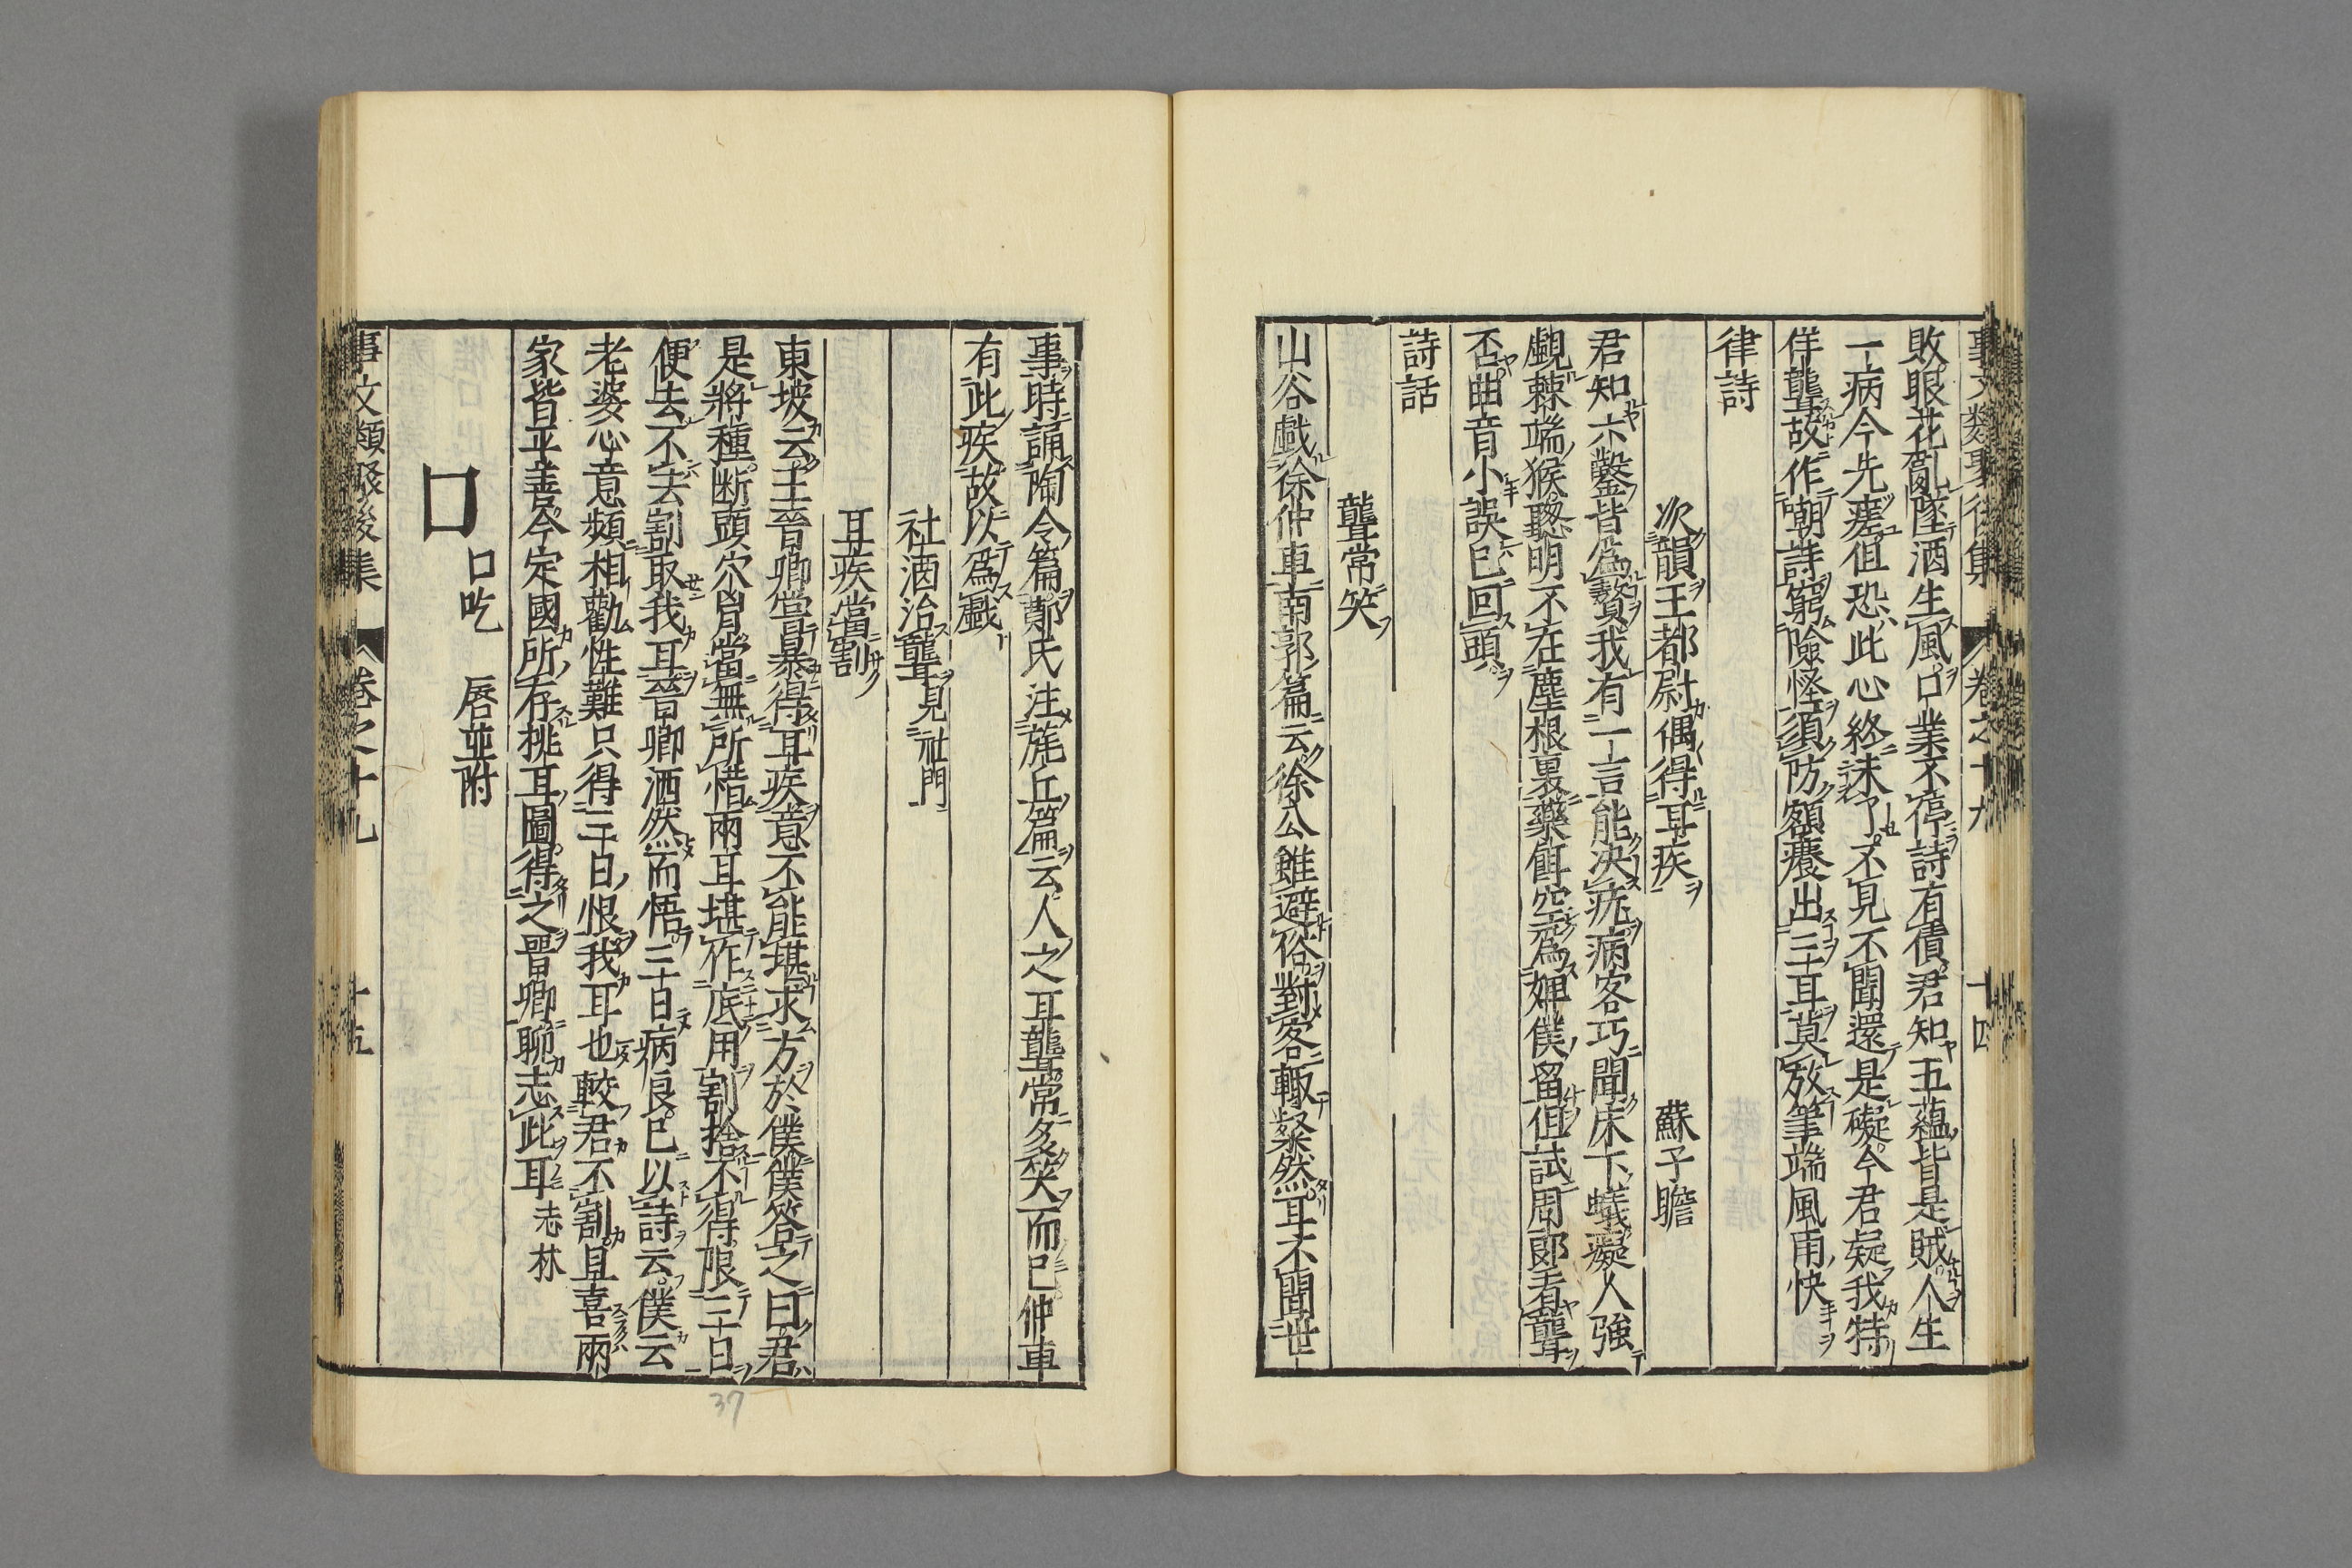 事文類聚後集 卷之十九 十四
敗眼花亂墜酒生風口業不停詩有債君知五蘊皆是賊人生
一病今先瘥但恐此心終未了不見不聞還是礙今君疑我特
佯聾故作嘲詩窮險怪須防額癢出三耳莫放筆端風雨快
律詩
次韻王都尉偶得耳疾 蘇子瞻
君知六鑿皆爲贅我有一言能决疣病客巧聞床下蟻癡人強
覷棘端猴聦明不在塵根裏藥餌空爲婢僕留但試周郎看聾
否曲音小誤巳回頭
詩話
聾常笑
山谷戯徐仲車南郭篇云徐公雖避俗對客輙粲然耳不聞世
事時誦陶令篇鄭氏注旄丘篇云人之耳聾常多笑而巳仲車
有此疾故以爲戯
社酒治聾見社門
耳疾當割
東坡云王晉卿嘗暴得耳疾意不能堪求方於僕僕答之曰君
是將種断頭穴胷當無所惜兩耳堪作底用割捨不得限三日
便去不去割取我耳晉卿洒然而悟三日病良巳以詩云僕云
老婆心意頻相勸性難只得三日恨我耳也較君不割且喜兩
家皆平善今定國所存挑耳圖得之晋卿聊志此耳志林
口 口吃 唇並附
事文類聚後集 卷之十九 十五
37